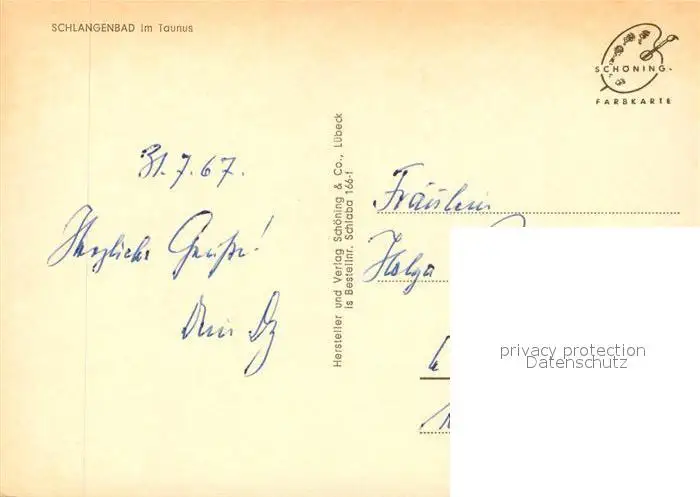 SCHLANGENBAD im Taunus
SCHÖNING-
FARBKARTE
31.7.67.
Herzliche Grüße!
Dein
Hersteller und Verlag Schöning & Co., Lübeck
is Bestellnr. Schlaba 166-f
Fräulein
Helga
privacy protection
Datenschutz